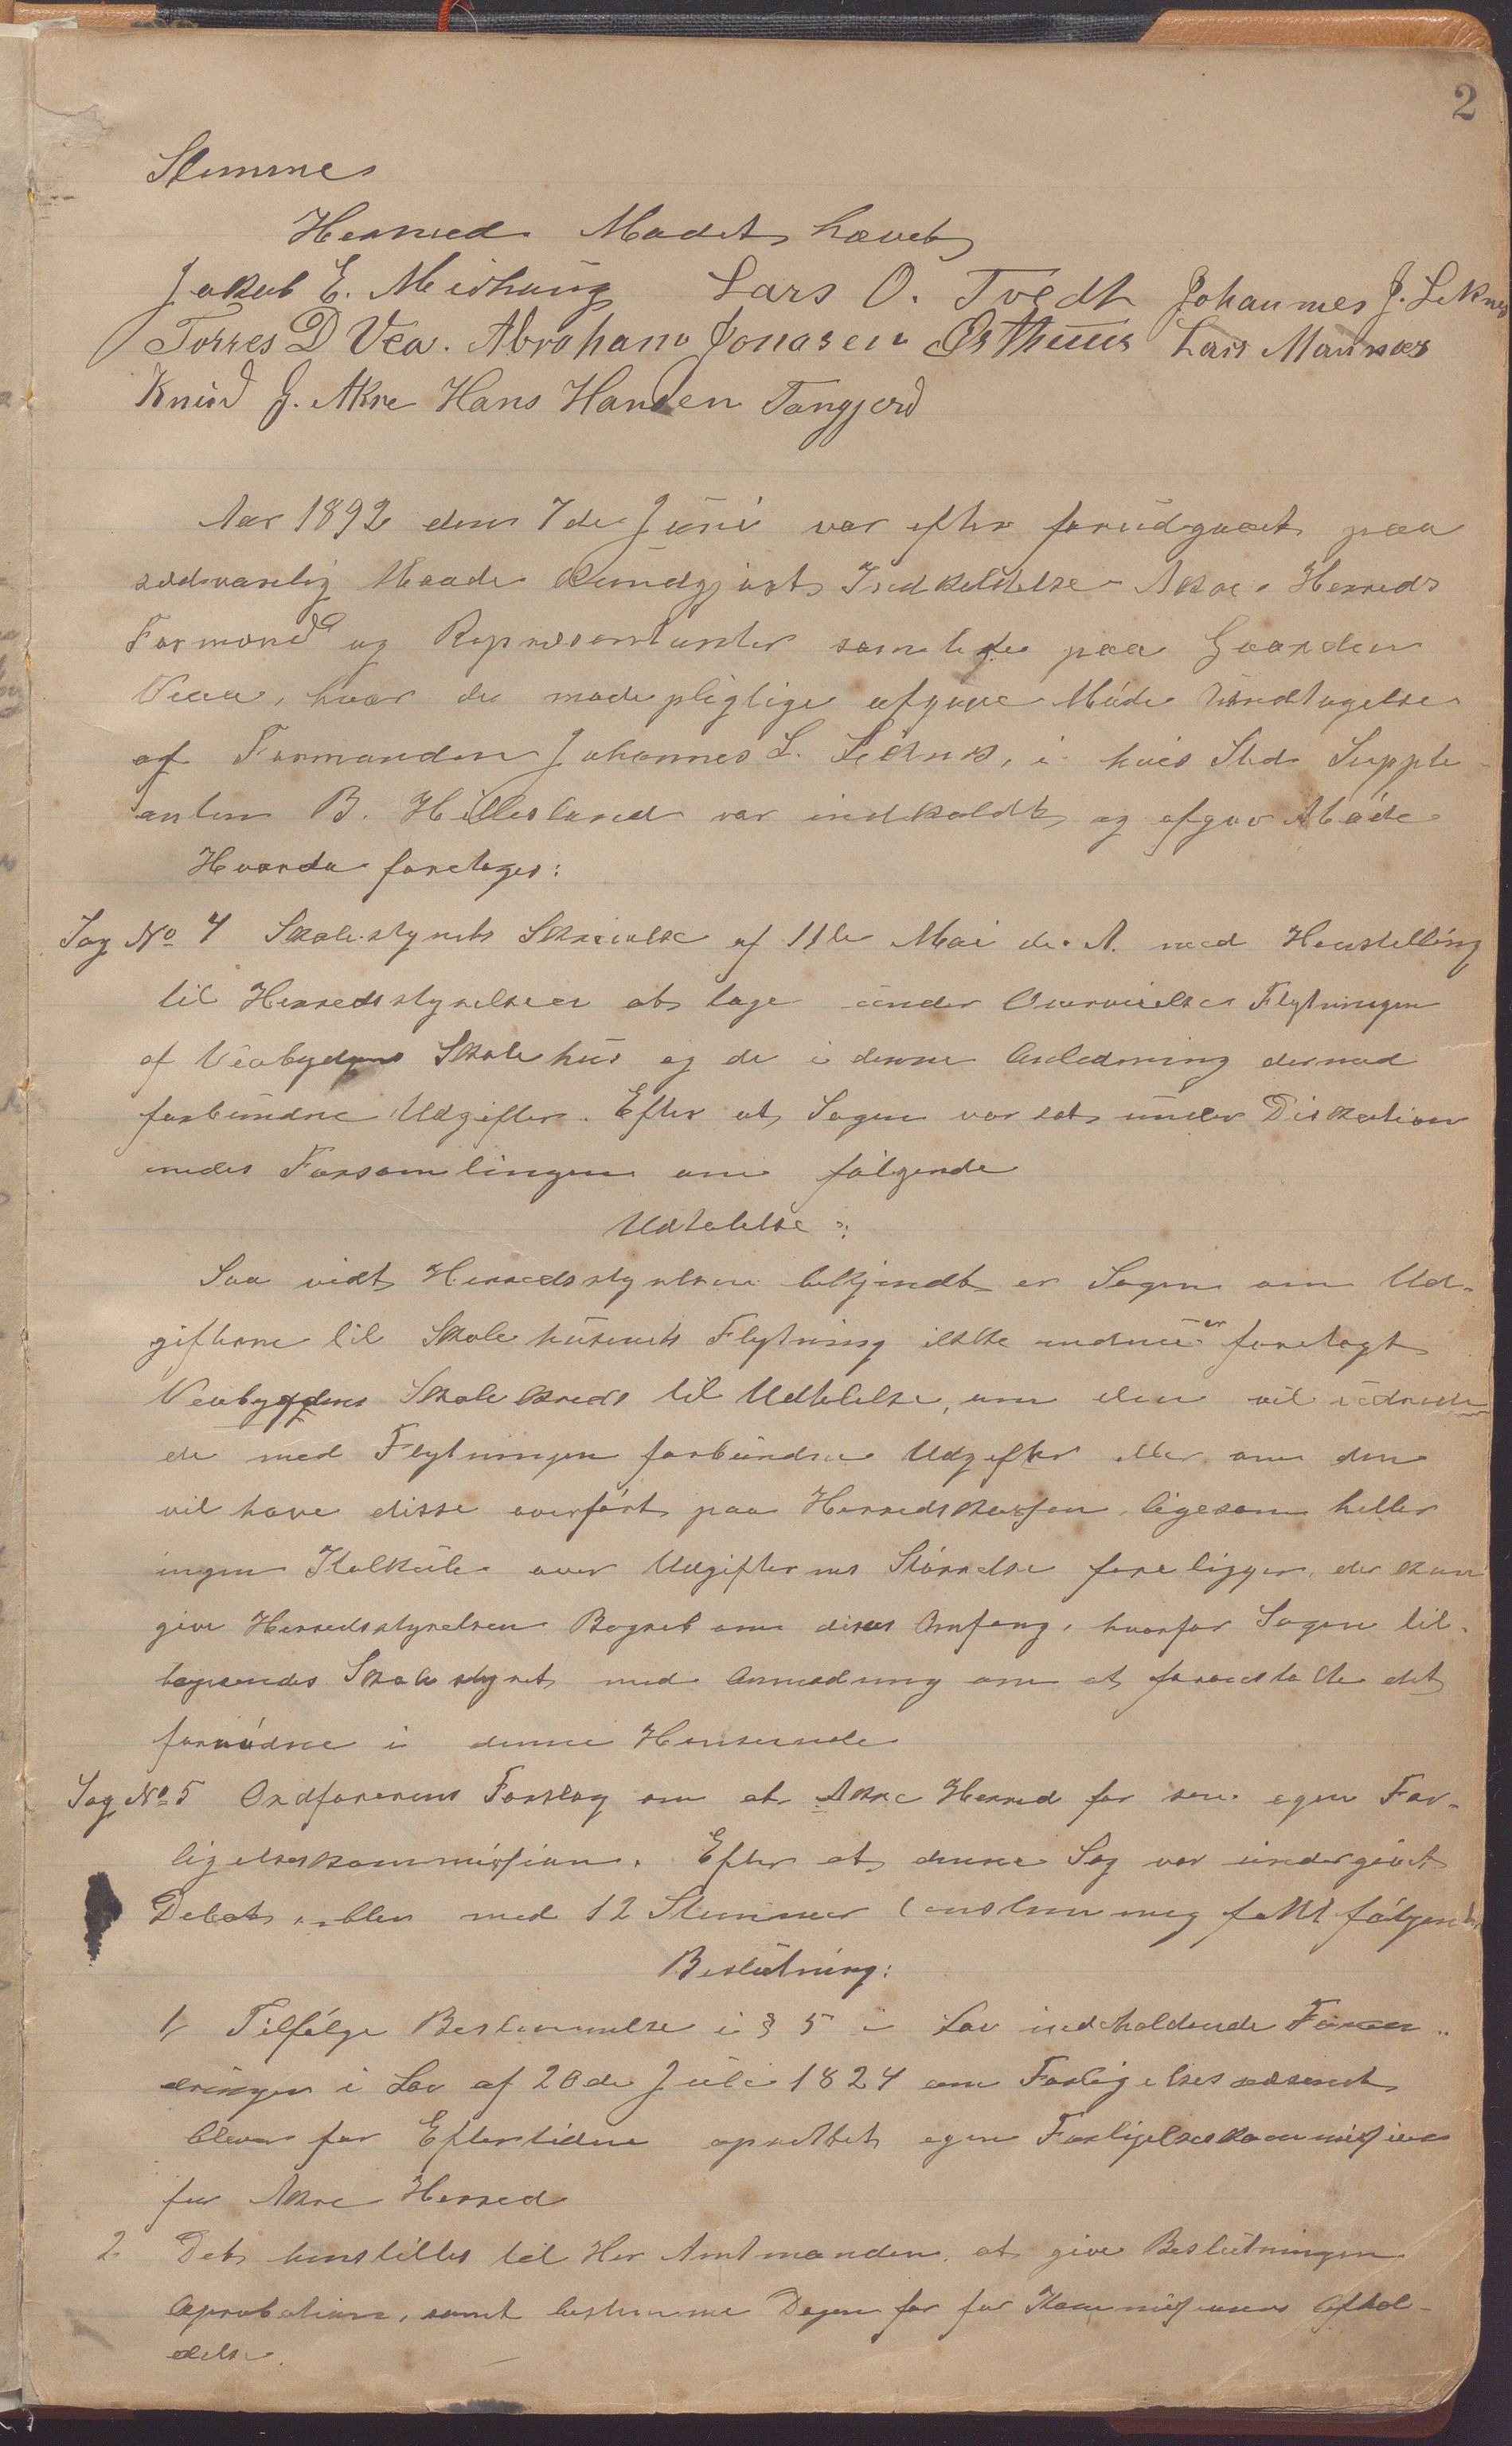 2
Stemmer
Hermed Mødet hævet
Jakob E. Mishaug Lars O. Tvedt Johannes J. Leknes
Torres D Vea. Abraham Jonasen Østhuus Lars Mannæs
Knud J. Akre Hans Hansen Tangjerd
Aar 1892 den 7de Juni var efter forudgaaet paa
sædvanlig Maade kundgjort Indkaldelse Akre Herreds
Formænd og Repræsentanter samlede paa Gaarden
Veaa, hvor de mødepligtige afgave Møde undtagelse
af Formanden Johannes L. Leknes, i hvis Sted Supple-
anten B. Hillesland var indkaldt og afgav Møde
Hvorda foretoges:
Sag No 4 Skolestyrets Skrivelse af 11te Mai d. A. med Henstilling
til Herredsstyrelsen at tage under Overveielse Flytningen
af Veabygdens Skolehus og de i denne Anledning dermed
forbundne Udgifter. Efter at Sagen var sat under Diskution
enedes Forsamlingen om følgende
Udtalelse:
Saa vidt Herredsstyrelsen bekjendt er Sagen om Ud-
gifterne til Skolehusets Flytning ikke endnu er foretagt
Veabygdens Skolekreds til Udtalelse, om den vil udrede
de med Flytningen forbundne Udgifter eller om den
vil have disse overført paa Herredskassen, ligesom heller
ingen Kalkule over Udgifternes Størrelse foreligger, der kan
give Herredsstyrelsen Begreb om disses Omfang, hvorfor Sagen til-
bagesendes Skolestyret med Anmodning om at foranstalte det
fornødne i denne Henseende
Sag No 5 Ordførerens Forslag om at Akre Herred faar sin egen For-
ligelseskommission. Efter at denne Sag var undergivet
Debat, blev med 12 Stemmer (enstemmig) fattet følgende
Beslutning:
1, Tilfølge Bestemmelse i § 5 i Lov indeholdende Foran-
dringer i Lov af 20de Juli 1824 om Forligelsesvæsenet
bliver for Eftertiden oprettet egen Forligelseskommission
for Akre Herred
2. Det henstilles til Hr Amtmanden, at give Beslutningen
Approbation, samt bestemme Dagen for for Kommissionens Afhol-
delse.